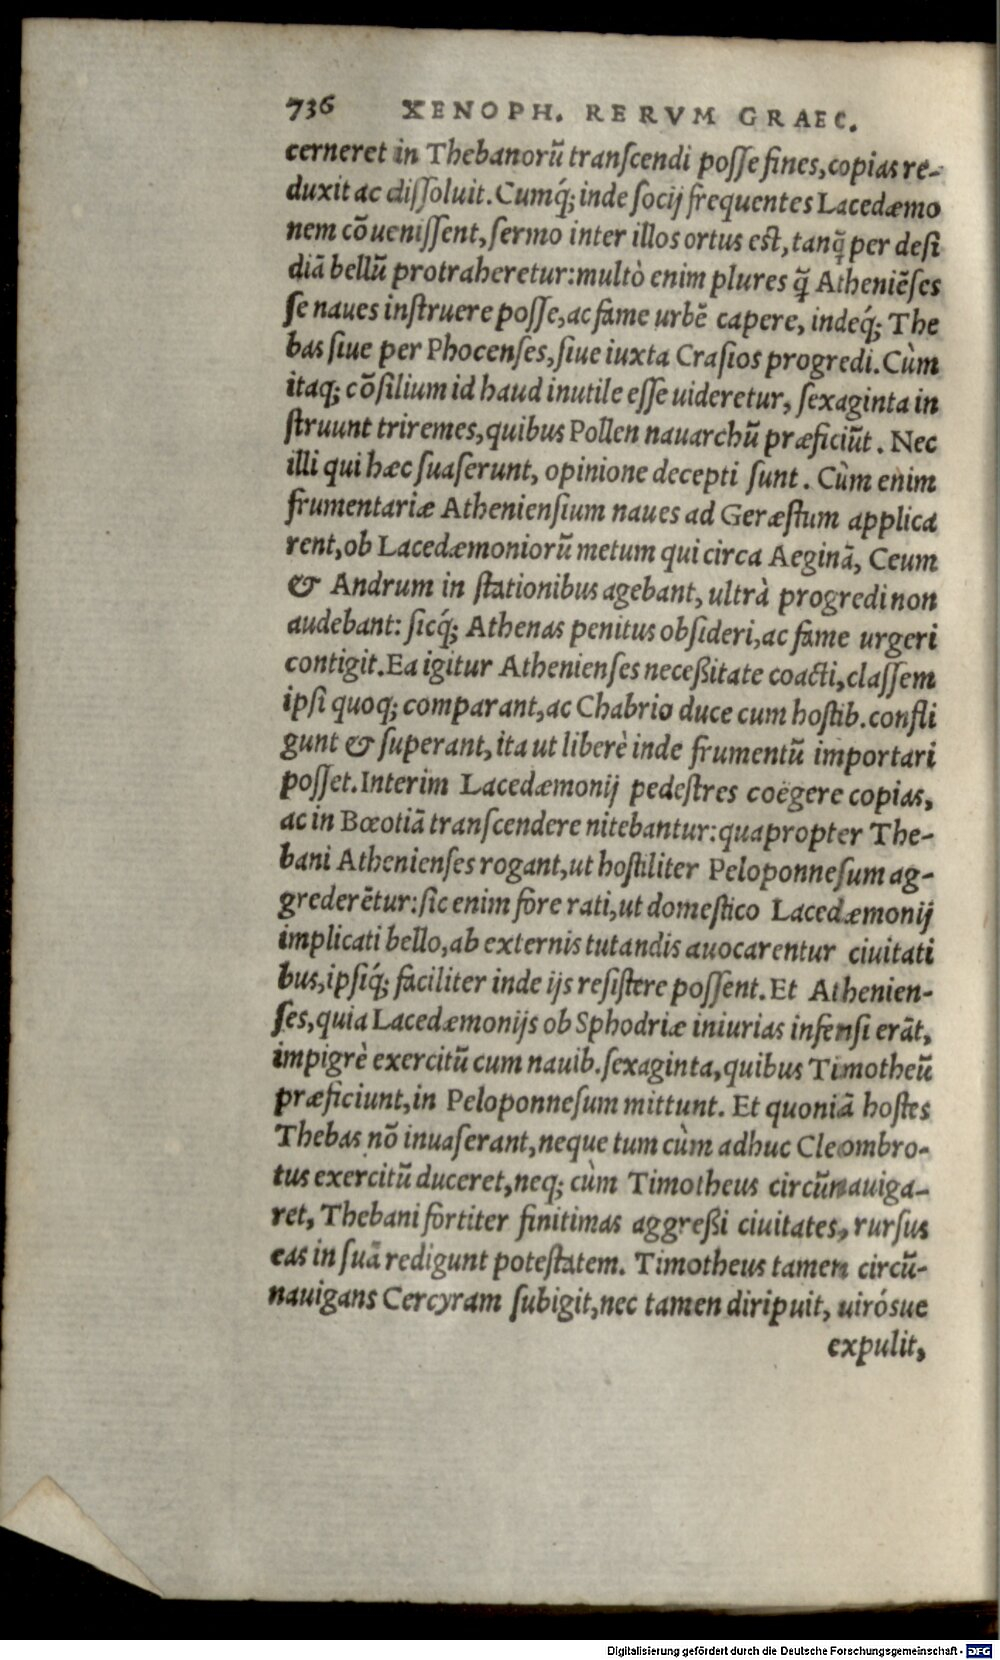 736 XENOPH. RERVM GRAEC.
cerneret in Thebanorũ tranſcendi poſſe fines, copias re-
duxit ac diſſoluit. Cumq́; inde ſocij frequentes Lacedæmo
nem cõueniſſent, ſermo inter illos ortus eſt, tanq̃ per deſi
diã bellũ protraheretur: multò enim plures q̃ Atheniẽſes
ſe naues inſtruere poſſe, ac fame urbẽ capere, indeq́; The
bas ſiue per Phocenſes, ſiue iuxta Craſios progredi. Cùm
itaq; cõſilium id haud inutile eſſe uideretur, ſexaginta in
ſtruunt triremes, quibus Pollen nauarchũ præficiũt. Nec
illi qui hæc ſuaſerunt, opinione decepti ſunt. Cùm enim
frumentariæ Athenienſium naues ad Geræſtum applica
rent, ob Lacedæmoniorũ metum qui circa Aeginã, Ceum
& Andrum in ſtationibus agebant, ultrà progredi non
audebant: ſicq́; Athenas penitus obſideri, ac fame urgeri
contigit. Ea igitur Athenienſes neceßitate coacti, claſſem
ipſi quoq; comparant, ac Chabrio duce cum hoſtib. confli
gunt & ſuperant, ita ut liberè inde frumentũ importari
poſſet. Interim Lacedæmonij pedeſtres coëgere copias,
ac in Bœotiã tranſcendere nitebantur: quapropter The-
bani Athenienſes rogant, ut hoſtiliter Peloponneſum ag-
grederẽtur: ſic enim fore rati, ut domeſtico Lacedæmonij
implicati bello, ab externis tutandis auocarentur ciuitati
bus, ipſiq́; faciliter inde ijs reſiſtere poſſent. Et Athenien-
ſes, quia Lacedæmonijs ob Sphodriæ iniurias infenſi erãt,
impigrè exercitũ cum nauib. ſexaginta, quibus Timotheũ
præficiunt, in Peloponneſum mittunt. Et quoniã hoſtes
Thebas nõ inuaſerant, neque tum cùm adhuc Cleombro-
tus exercitũ duceret, neq; cùm Timotheus circũnauiga-
ret, Thebani fortiter finitimas aggreßi ciuitates, rurſus
eas in ſuã redigunt poteſtatem. Timotheus tamen circũ-
nauigans Cercyram ſubigit, nec tamen diripuit, uiróſue
expulit,
Digitalisierung gefördert durch die Deutsche Forschungsgemeinschaft - DFG